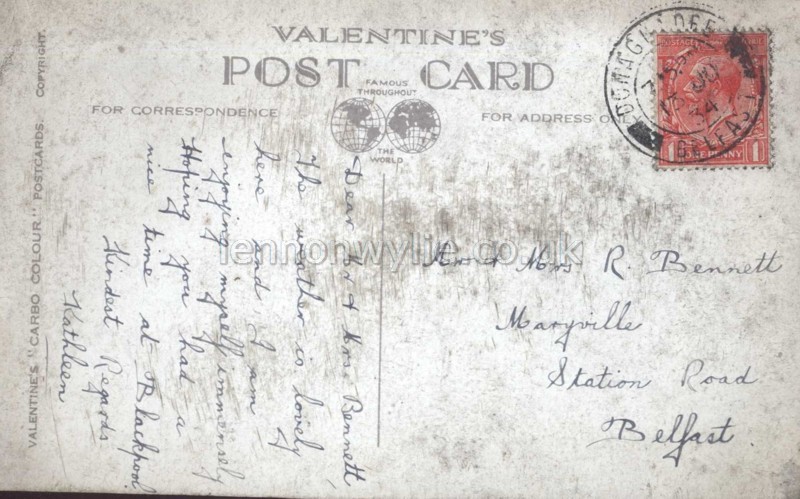 VALENTINE'S
POST CARD
FAMOUS
THROUGHOUT
THE
WORLD
FOR CORRESPONDENCE
FOR ADDRESS ON
VALENTINE'S "CARBO COLOUR" POSTCARDS. COPYRIGHT.
DONAGHADEE
BELFAST
15 JU
34
POSTAGE
ONE PENNY
1 1
Dear Mr & Mrs Bennett
The weather is lovely
here and I am
enjoying myself immensely
Hoping you had a
nice time at Blackpool
Kindest Regards
Kathleen
Mr & Mrs R. Bennett
Maryville
Station Road
Belfast
lennonwylie.co.uk